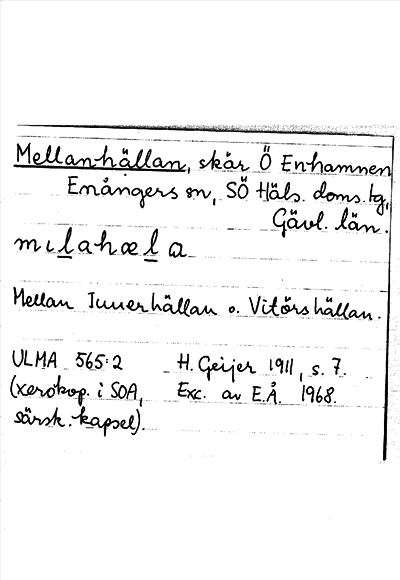 Mellanhällan, skär Ö Enhamnen
Enångers sn, SÖ Häls. doms.tg,
Gävl. län.
mılahæla
Mellan Innerhällan o. Vitörshällan.
ULMA 565:2 H. Geijer 1911, s. 7.
(xerokop. i SOA, Exc. av E.Å. 1968.
särsk. kapsel).